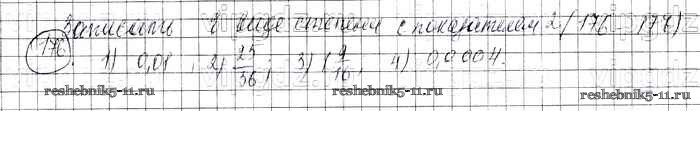 Записать в виде степени с показателем 2 (176, 177)
176. 1) 0,01 2) 25/36; 3) 1 9/16; 4) 0,0004.
reshebnik5-11.ru reshebnik5-11.ru reshebnik5-11.ru